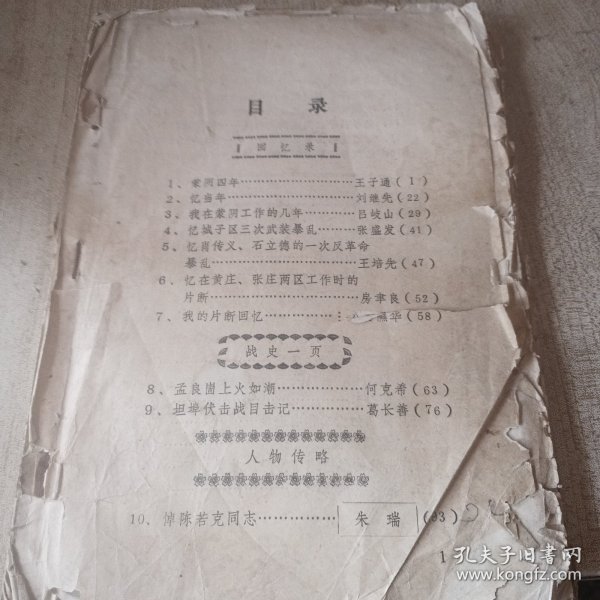 目 录
回 忆 录
1、蒙阴四年……………………王子通(1)
2、忆当年………………………刘继先(22)
3、我在蒙阴工作的几年…………吕岐山(29)
4、忆城子区三次武装暴乱………张盛发(41)
5、忆肖传义、石立德的一次反革命
暴乱……………………………王培先(47)
6、忆在黄庄、张庄两区工作时的
片断……………………………房聿良(52)
7、我的片断回忆…………… 华(58)
战史一页
8、孟良崮上火如潮……………何克希(63)
9、坦埠伏击战目击记……………葛长善(76)
人物传略
10、悼陈若克同志……………朱 瑞(93)
1
孔夫子旧书网
www.kongfz.com